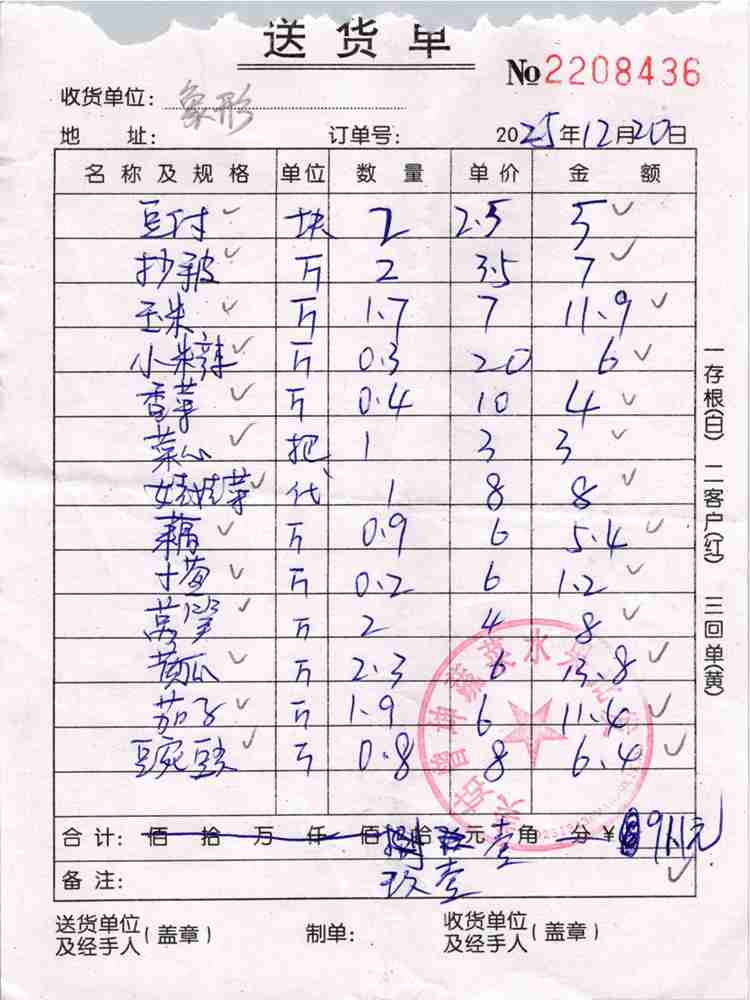 送货单
No 2208436
收货单位: 象形
地 址: 订单号: 2025年12月20日
名称及规格 单位 数量 单价 金额
豆付 块 2 2.5 5
抄 万 2 3.5 7
玉米 万 1.7 7 11.9
小米辣 万 0.3 20 6
香菜 万 0.4 10 4
菜心 把 1 3 3
娃娃菜 代 1 8 8
藕 万 0.9 6 5.4
十葱 万 0.2 6 1.2
莴笋 万 2 4 8
黄瓜 万 2.3 6 13.8
茄子 万 1.9 6 11.4
豆豌豆 万 0.8 8 6.4
合计: 佰 拾 万 仟 佰 拾 元 壹 角 分 ¥ 91.1元
备注: 玖壹
送货单位及经手人(盖章) 制单: 收货单位及经手人(盖章)
一存根(白) 二客户(红) 三回单(黄)
曾坤蔬菜水果